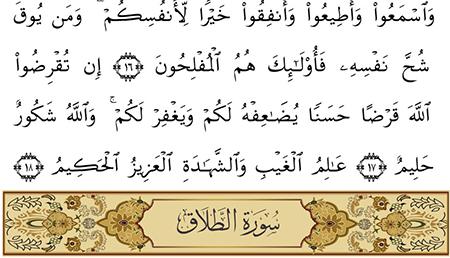 وَٱسْمَعُوا۟ وَأَطِيعُوا۟ وَأَنفِقُوا۟ خَيْرًا لِّأَنفُسِكُمْ ۗ وَمَن يُوقَ
شُحَّ نَفْسِهِۦ فَأُو۟لَٰٓئِكَ هُمُ ٱلْمُفْلِحُونَ ﴿١٦﴾ إِن تُقْرِضُوا۟
ٱللَّهَ قَرْضًا حَسَنًا يُضَٰعِفْهُ لَكُمْ وَيَغْفِرْ لَكُمْ ۚ وَٱللَّهُ شَكُورٌ
حَلِيمٌ ﴿١٧﴾ عَٰلِمُ ٱلْغَيْبِ وَٱلشَّهَٰدَةِ ٱلْعَزِيزُ ٱلْحَكِيمُ ﴿١٨﴾
سُورَةُ ٱلطَّلَاقِ